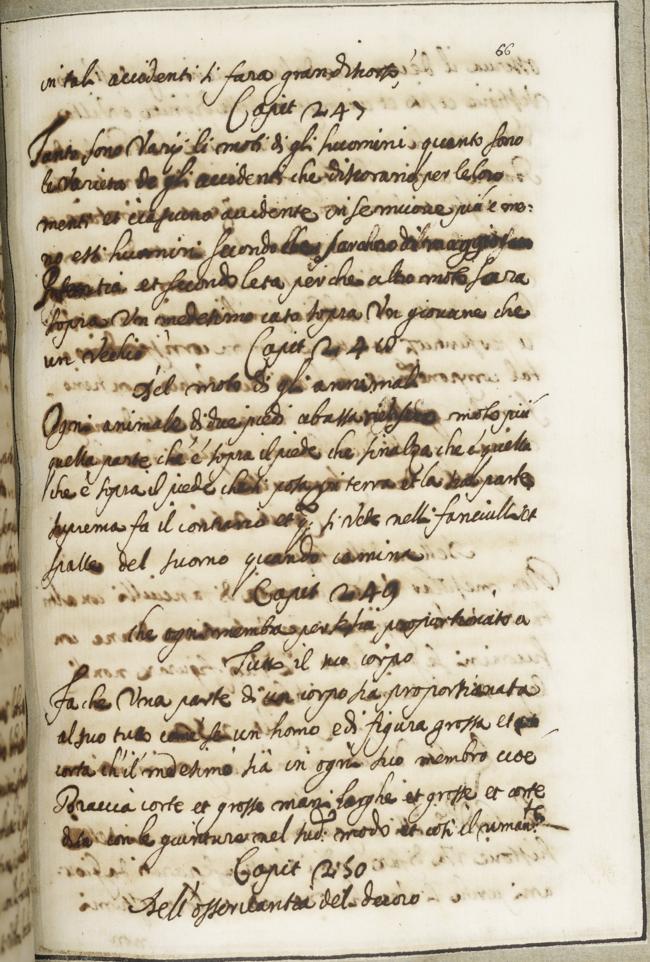 66
in tali accidenti si fara gran discorso
Capit 247
Tanto sono Varij li moti di gli huomini quanto sono
le Varieta de gli accidenti che discorano per le loro
menti et ciascuno accidente in se muove più e me:
no essi huomini secondo che saranno di maggior
et secondo leta perche altro moto fara
sopra Un medesimo caso sopra Un giovane che
un Vechio
Capit 248
Del moto di gli annimali
Ogni animale di due piedi abassa nel suo moto più
quella parte ch'è sopra il piede che s'inalza che quella
che è sopra il piede che si posa in terra et la sua parte
suprema fa il contrario et q.º si vede nelli fianchi et
spalle del huomo quando camina
Capit 249
che ogni membro per se sia proportionato a
Tutto il suo corpo
Fa che Una parte di un corpo sia proportionata
al suo tutto come se un homo e di figura grossa et
corta ch'il medesimo sia in ogni suo membro cioè
Braccia corte et grosse mani larghe et grosse et corte
dita con le giunture nel sud.º modo et così il riman.te
Capit 250
Dell'osservantia del decoro